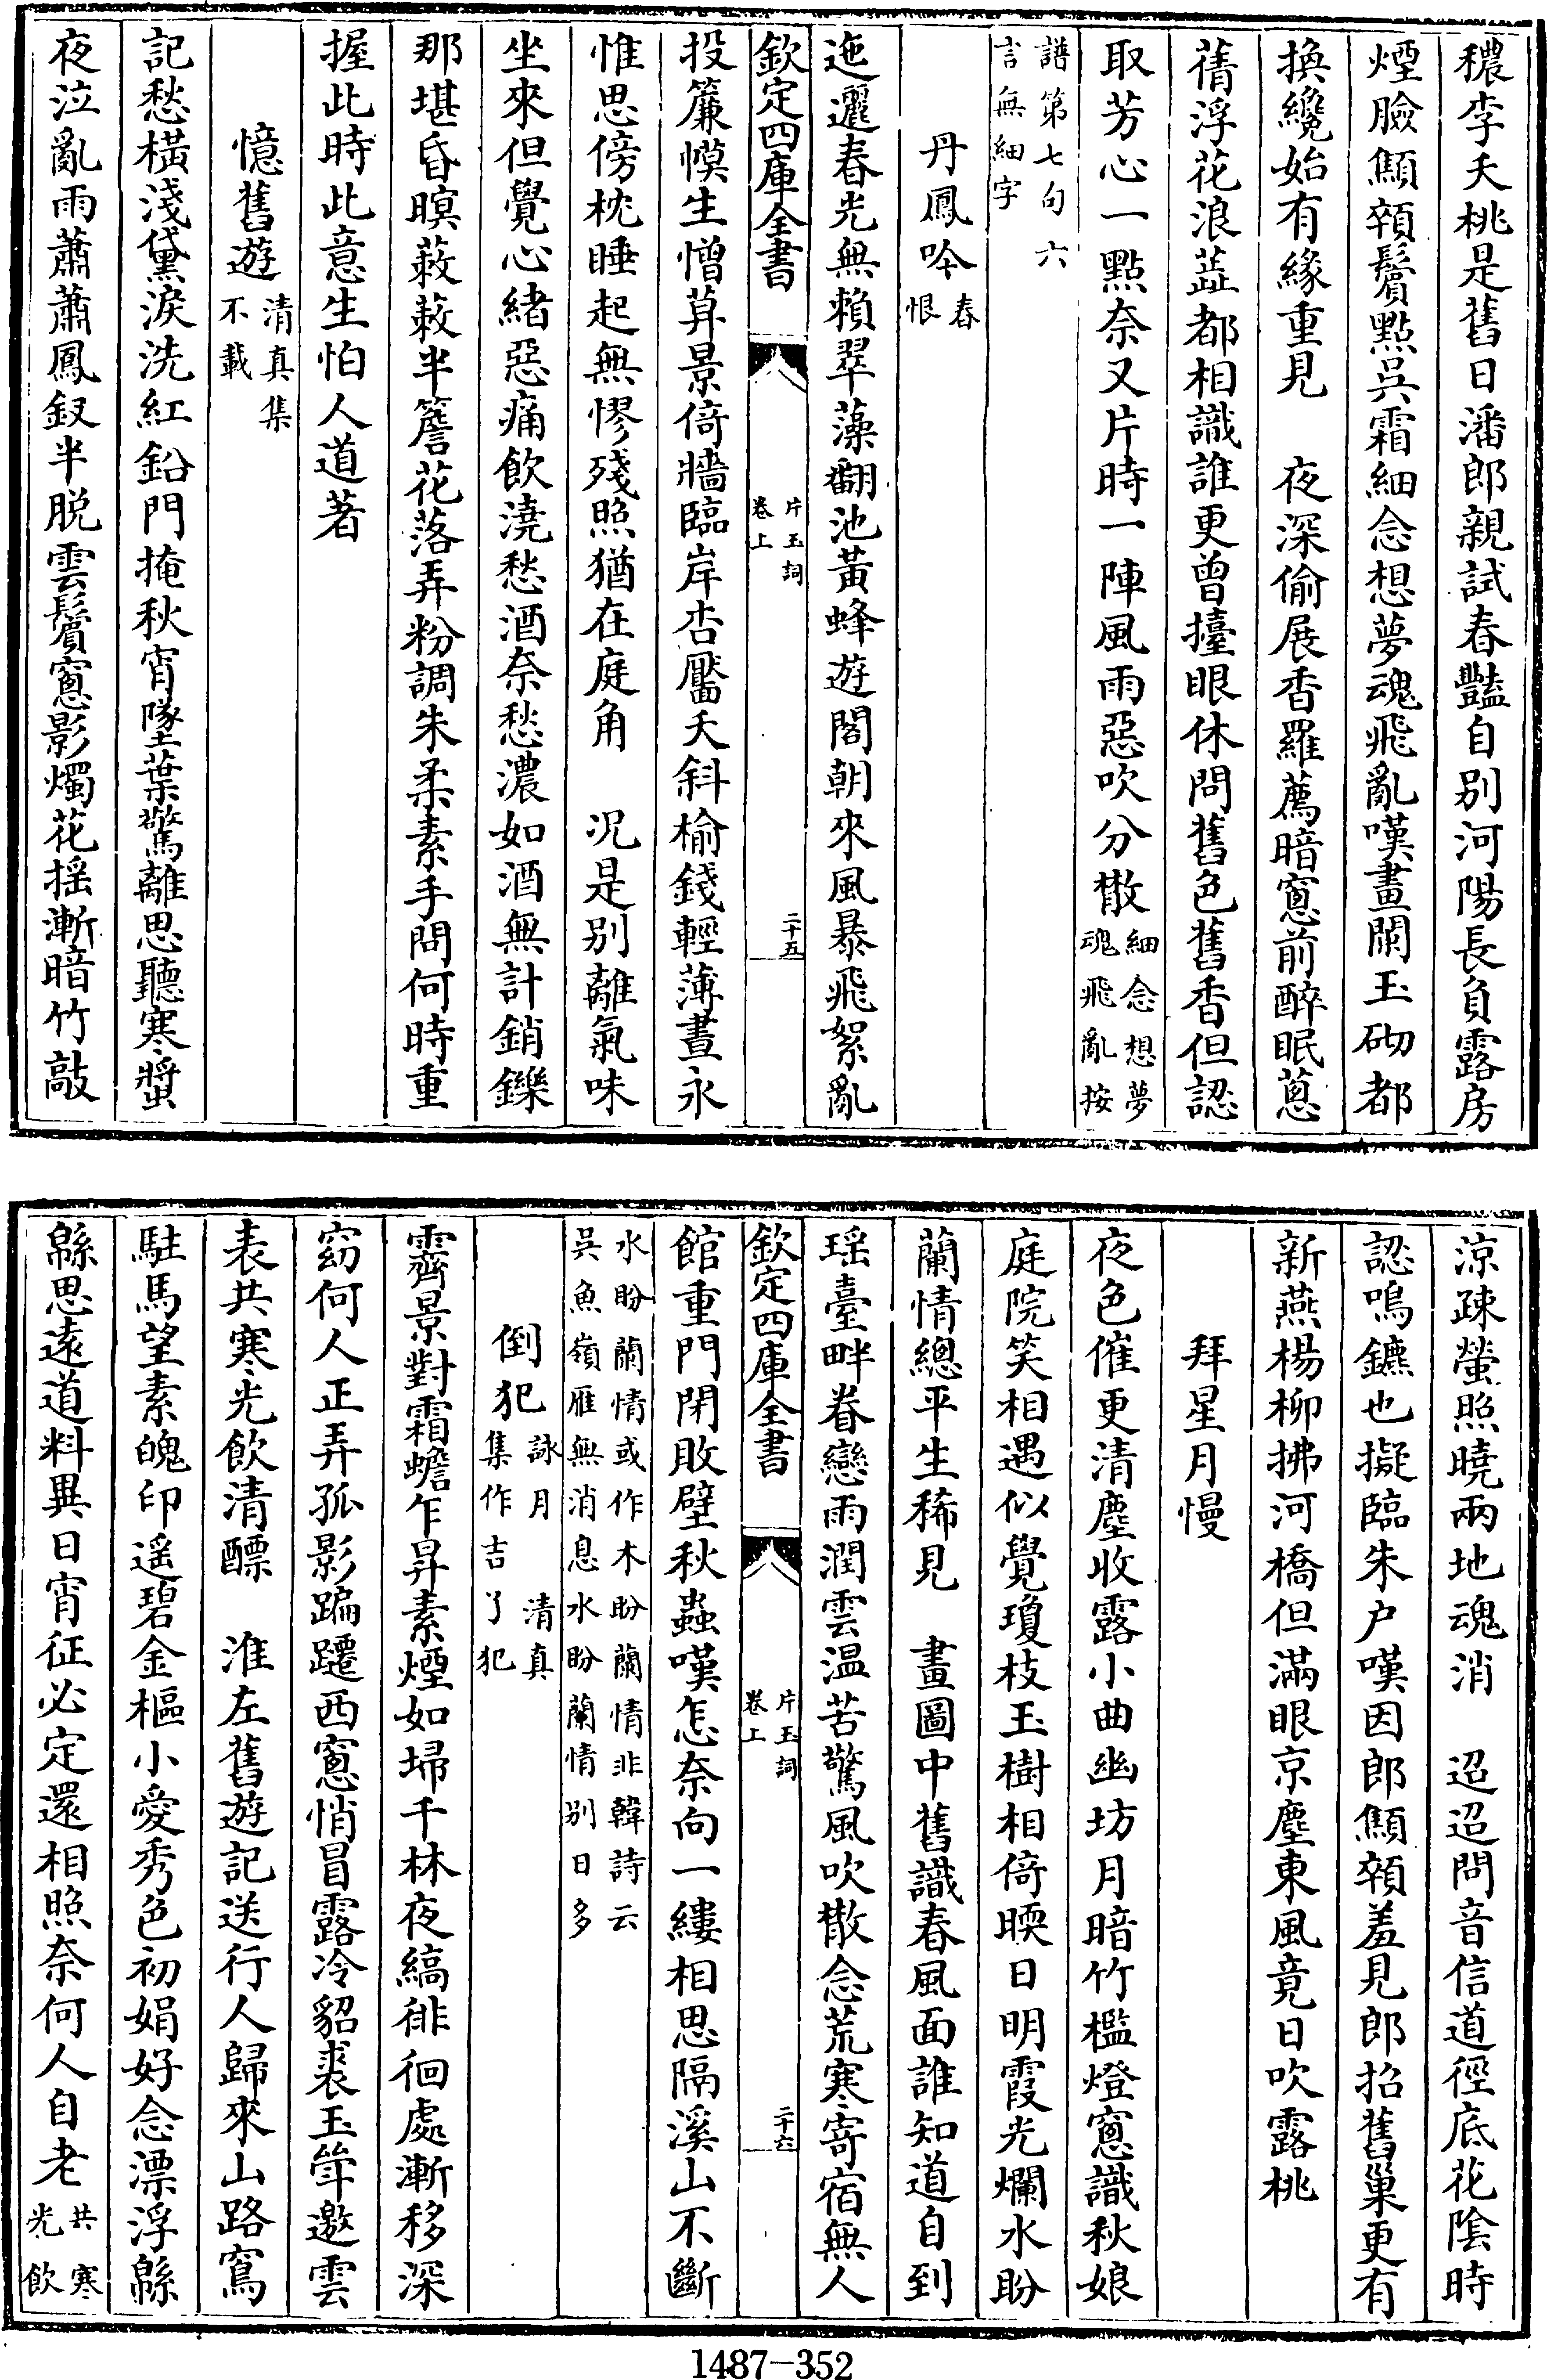 穠李夭桃是舊日潘郎親試春豔自別河陽長負露房
煙臉顦顇鬢點吳霜細念想夢魂飛亂嘆畫闌玉砌都
換纔始有緣重見　夜深偷展香羅薦暗窻前醉眠蔥
蒨浮花浪蘂都相識誰更曾擡眼休問舊色舊香但認
取芳心一點奈又片時一陣風雨惡吹分㪚細念想夢魂飛亂按
譜第七句六言無細字
丹鳳吟春恨
迤邐春光無賴翠藻翻池黃蜂遊閣朝來風暴飛絮亂
欽定四庫全書
片玉詞
卷上
二十五
投簾幙生憎莫景倚牆臨岸杏靨夭斜榆錢輕薄晝永
惟思傍枕睡起無憀殘照猶在庭角　况是别離氣味
坐來但覺心緒惡痛飲澆愁酒奈愁濃如酒無計銷鑠
那堪昏暝蔌蔌半簷花落弄粉調朱柔素手問何時重
握此時此意生怕人道著
憶舊遊清真集不載
記愁橫淺黛淚洗紅鉛門掩秋宵墜葉驚離思聽寒螿
夜泣亂雨蕭蕭鳳釵半脫雲鬢窻影燭花揺漸暗竹敲
涼疎螢照曉兩地魂消　迢迢問音信道徑底花陰時
認鳴鑣也擬臨朱户嘆因郎顦顇羞見郎招舊巢更有
新燕楊柳拂河橋但滿眼京塵東風竟日吹露桃
拜星月慢
夜色催更清塵收露小曲幽坊月暗竹檻燈窻識秋娘
庭院笑相遇似覺瓊枝玉樹相倚暎日明霞光爛水盼
蘭情總平生稀見　畫圖中舊識春風面誰知道自到
瑶臺畔眷戀雨潤雲温苦驚風吹㪚念荒寒寄宿無人
欽定四庫全書
片玉詞
卷上
二十六
館重門閉敗壁秋蟲嘆怎奈向一縷相思隔溪山不斷
水盼蘭情或作木盼蘭情非韓詩云
吳魚嶺雁無消息水盼蘭情别日多
倒犯詠月　清真集作吉了犯
霽景對霜蟾乍昇素煙如埽千林夜縞徘徊處漸移深
窈何人正弄孤影蹁躚西窻悄冒露冷貂裘玉斝邀雲
表共寒光飲清醥　淮左舊遊記送行人歸來山路窵
駐馬望素魄印遥碧金樞小愛秀色初娟好念漂浮緜
緜思遠道料異日宵征必定還相照奈何人自老共寒光飲
1487-352